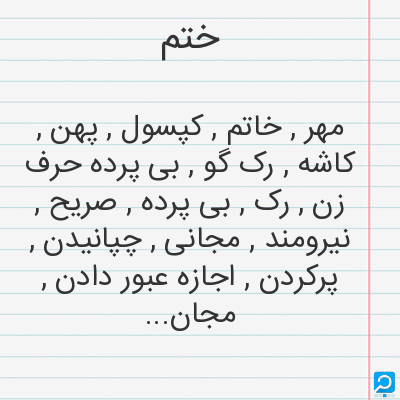 ختم
مهر , خاتم , کپسول , پهن ,
کاشه , رک گو , بی پرده حرف
زن , رک , بی پرده , صریح ,
نیرومند , مجانی , چپانیدن ,
پرکردن , اجازه عبور دادن ,
مجان...